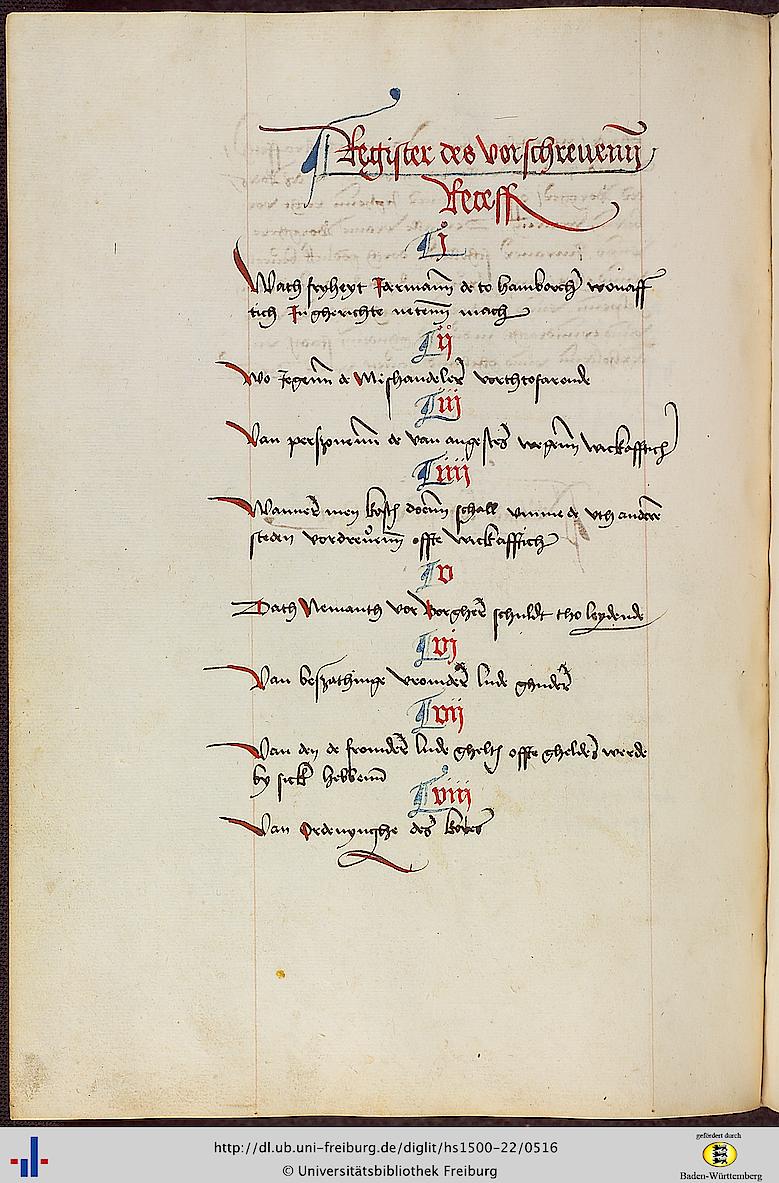 Register des vorschreuenn
Receß
j
Wath fryheyt Jdermann de to hamborch wonafftich
Jn gherichte netenn mach
ij
Wo Jegenn de Mishandeler vorthtofarende
iij
Van perszonenn de van angestes wegenn wickafftich
iiij
Wanner men kost doenn schall vmme de vth andere
steden vordreuenn offte wickafftich
v
Dath Nemanth vor Borgher schuldt tho leydende
vj
Van beszathinge vromder lude guder
vij
Van den de fromder lude ghelt offte ghelder werde
by sick hebbenn
viij
Van Ordenynghe des
http://dl.ub.uni-freiburg.de/diglit/hs1500-22/0516
© Universitätsbibliothek Freiburg
gefördert durch
Baden-Württemberg